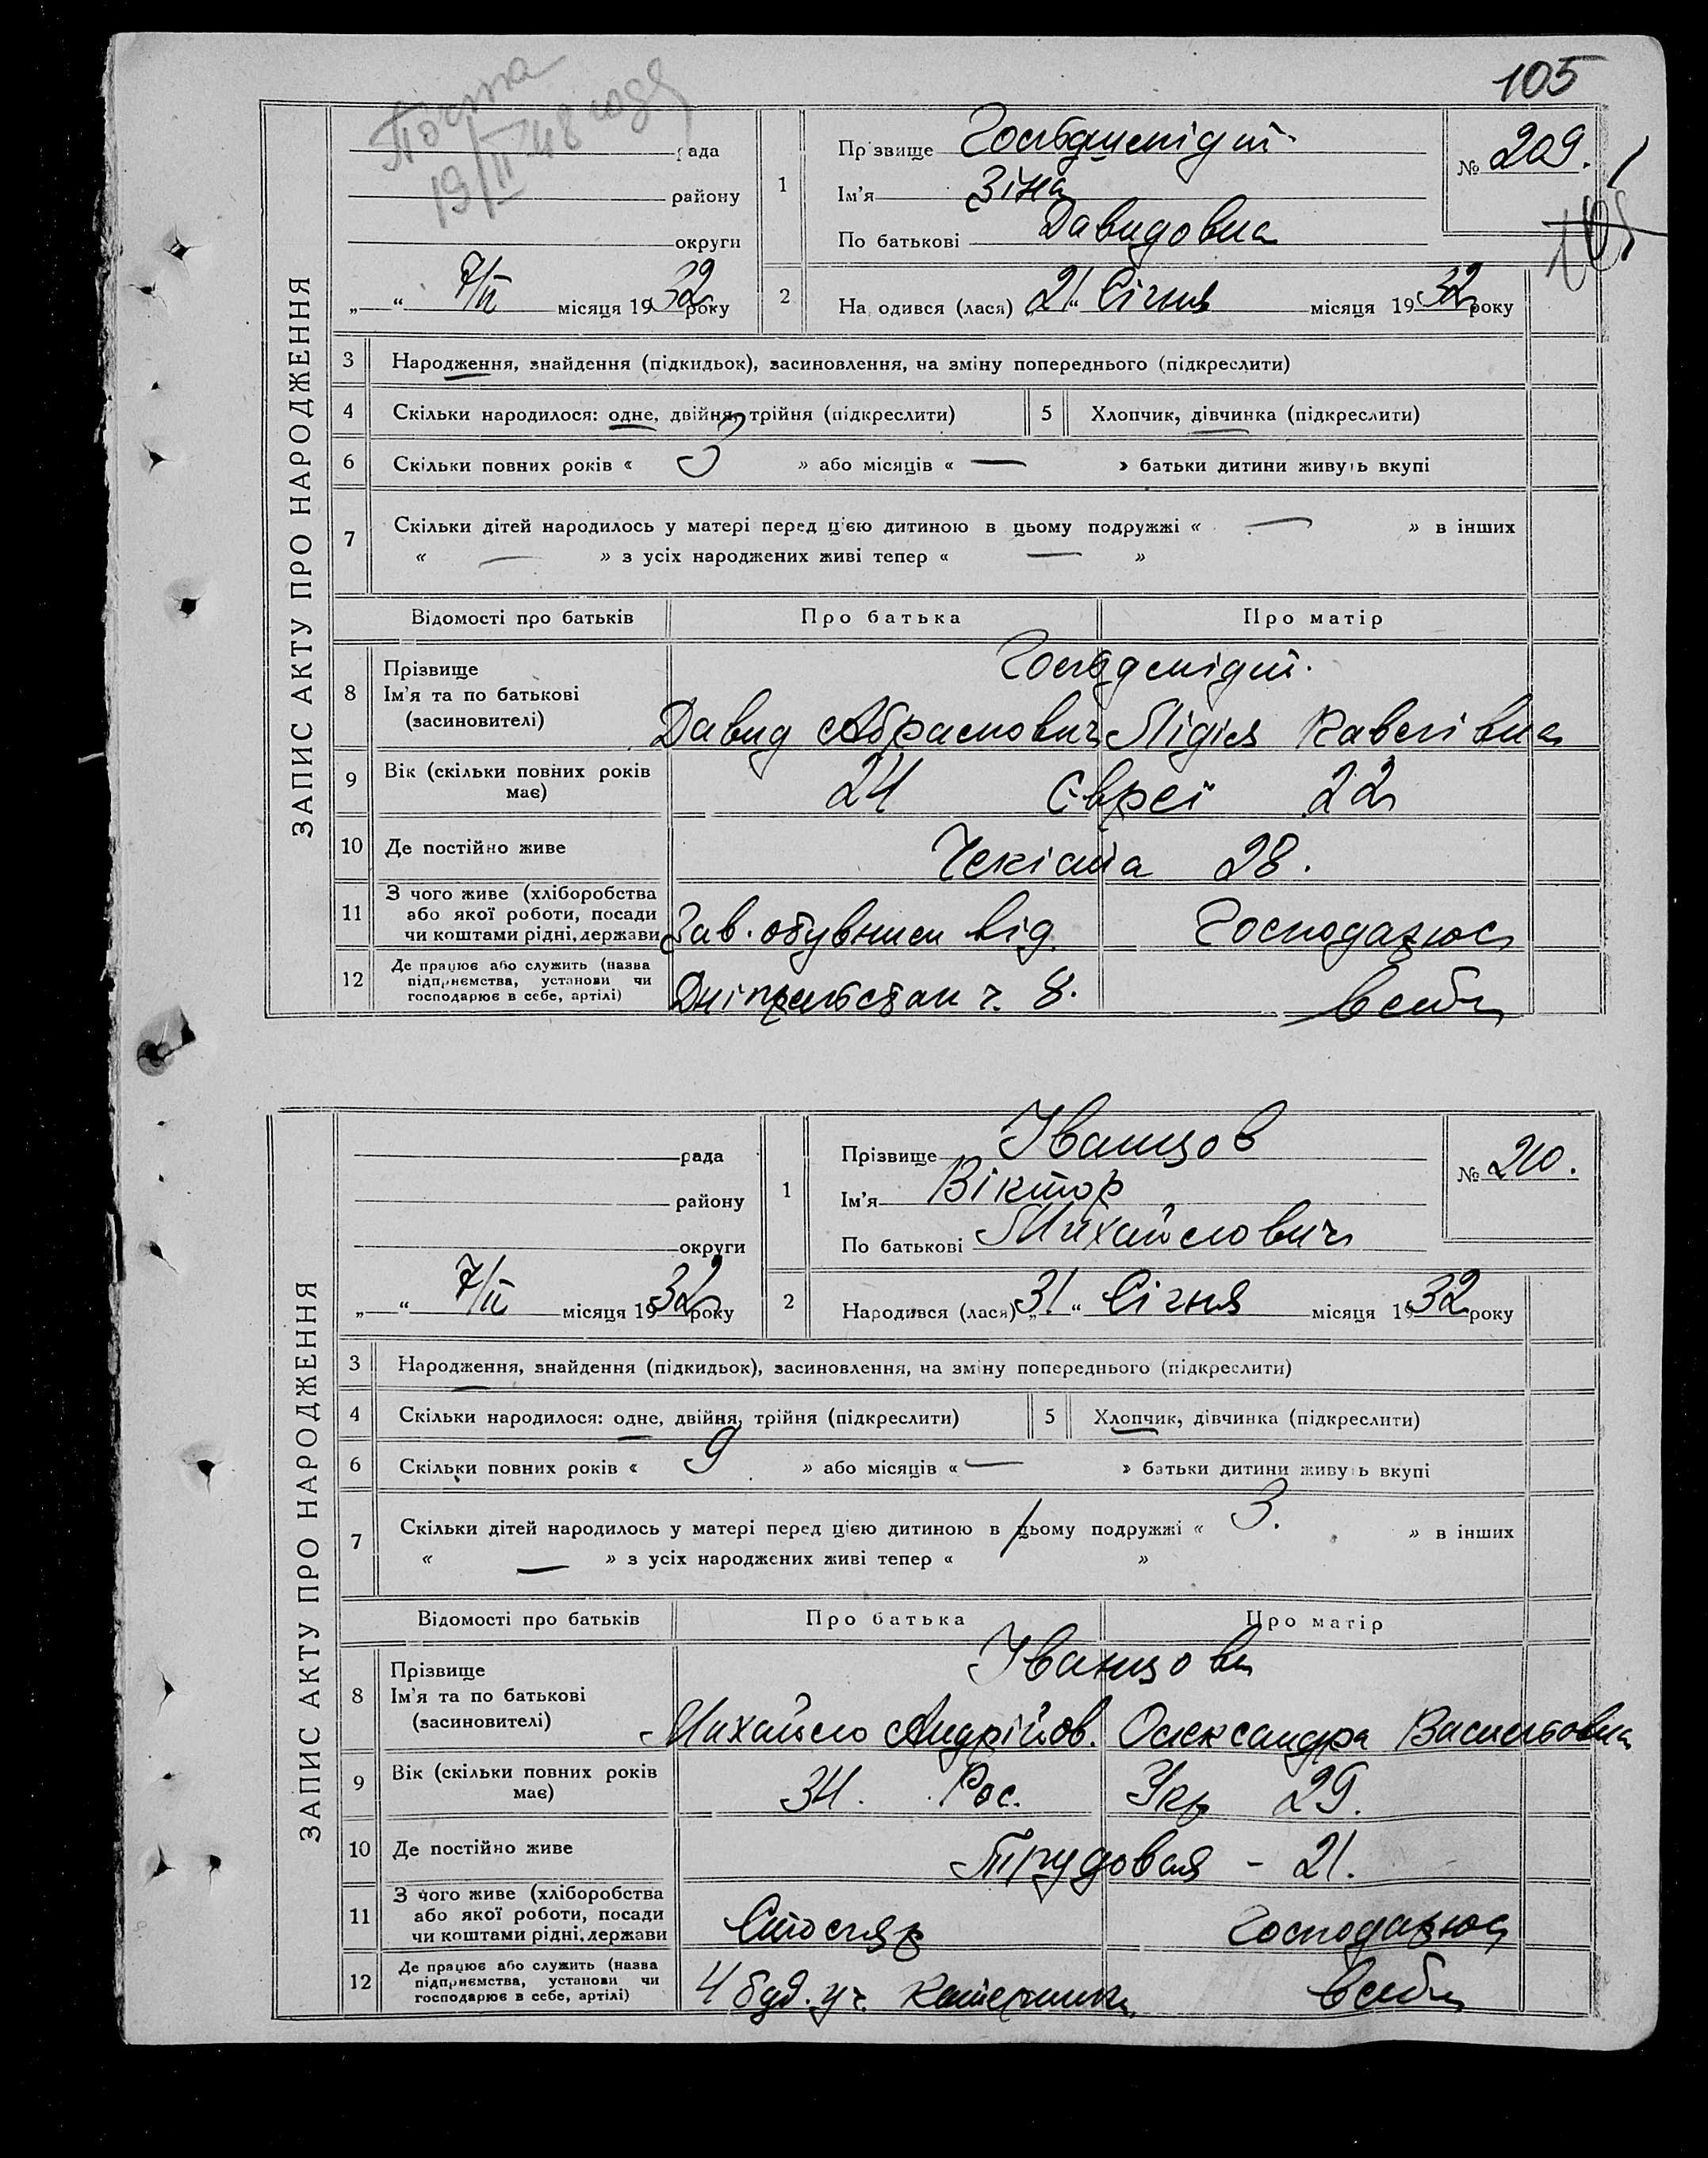 105
Почта
19/II 48 года
ЗАПИС АКТУ ПРО НАРОДЖЕННЯ
рада
району
округи
„ “ 7/II місяця 1932 року
1
Прізвище Гольдшмідт
Ім'я Зіна
По батькові Давидовна
№ 209.
105
2 Народився (лася) „21“ Січня місяця 1932 року
3 Народження, знайдення (підкидьок), засиновлення, на зміну попереднього (підкреслити)
4 Скільки народилося: одне, двійня, трійня (підкреслити) 5 Хлопчик, дівчинка (підкреслити)
6 Скільки повних років « 3 » або місяців « — » батьки дитини живуть вкупі
7 Скільки дітей народилось у матері перед цією дитиною в цьому подружжі « — » в інших
« — » з усіх народжених живі тепер « — »
Відомості про батьків Про батька Про матір
8 Прізвище
Ім'я та по батькові
(засиновителі)
Гольдшмідт.
Давид Абрамович Лідія
9 Вік (скільки повних років має) 24 Євреї 22
10 Де постійно живе 28.
11 З чого живе (хліборобства або якої роботи, посади чи коштами рідні, держави Зав. обувним від. Господарює
12 Де працює або служить (назва підприємства, установи чи господарює в себе, артілі) ч. 8. в себе
ЗАПИС АКТУ ПРО НАРОДЖЕННЯ
рада
району
округи
„ “ 7/II місяця 1932 року
1
Прізвище Іванцов
Ім'я Віктор
По батькові Михайлович
№ 210.
2 Народився (лася) „31“ Січня місяця 1932 року
3 Народження, знайдення (підкидьок), засиновлення, на зміну попереднього (підкреслити)
4 Скільки народилося: одне, двійня, трійня (підкреслити) 5 Хлопчик, дівчинка (підкреслити)
6 Скільки повних років « 9 » або місяців « — » батьки дитини живуть вкупі
7 Скільки дітей народилось у матері перед цією дитиною в цьому подружжі « 3. » в інших
« — » з усіх народжених живі тепер « »
Відомості про батьків Про батька Про матір
8 Прізвище
Ім'я та по батькові
(засиновителі)
Іванцови
Михайло Андрійов. Олександра Васильовна
9 Вік (скільки повних років має) 34. Рос. Укр 29.
10 Де постійно живе Трудовая - 21.
11 З чого живе (хліборобства або якої роботи, посади чи коштами рідні, держави Столяр Господарює
12 Де працює або служить (назва підприємства, установи чи господарює в себе, артілі) 4 буд. уч. в себе